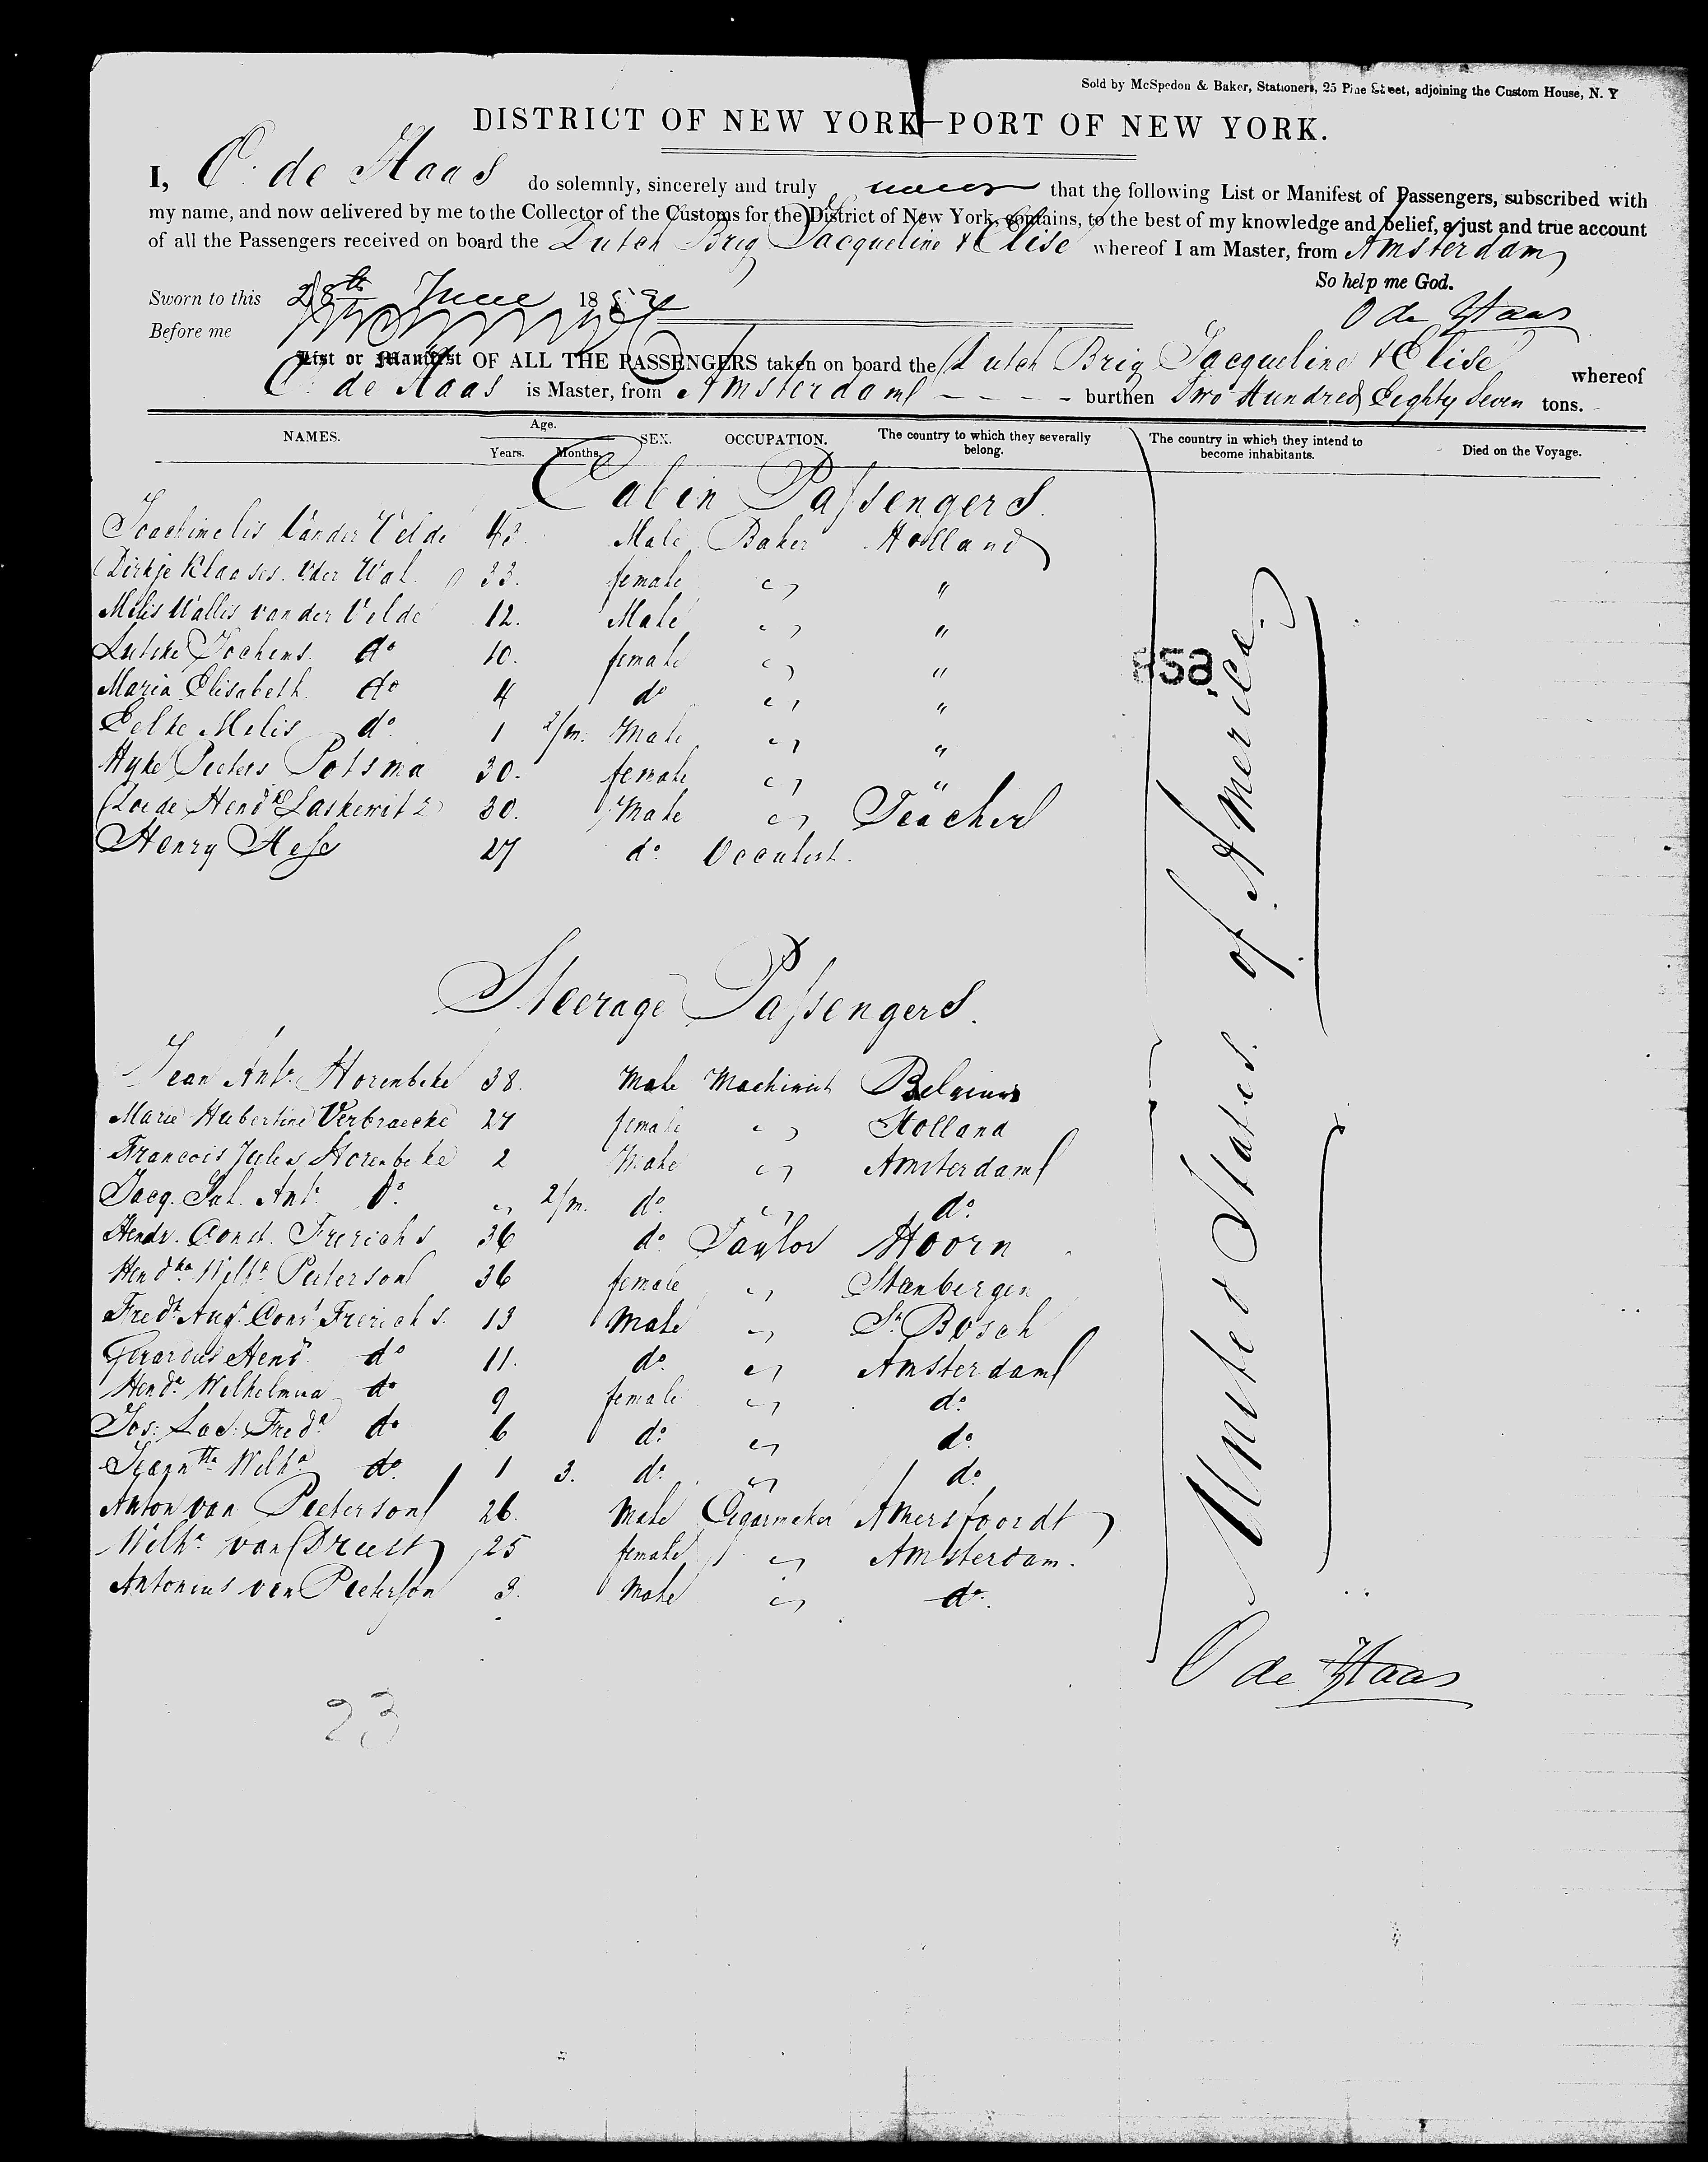 Sold by McSpedon & Baker, Stationers, 25 Pine Street, adjoining the Custom House, N. Y
DISTRICT OF NEW YORK—PORT OF NEW YORK.
I, O. de Haas do solemnly, sincerely and truly swear that the following List or Manifest of Passengers, subscribed with
my name, and now delivered by me to the Collector of the Customs for the District of New York, contains, to the best of my knowledge and belief, a just and true account
of all the Passengers received on board the Dutch Brig Jacqueline & Elise whereof I am Master, from Amsterdam
So help me God.
Sworn to this 28th June 185
O de Haas
Before me
List or Manifest OF ALL THE PASSENGERS taken on board the Dutch Brig Jacqueline & Elise whereof
O. de Haas is Master, from Amsterdam - - - - burthen Two Hundred Eighty Seven tons.
NAMES. Age. Years. Months. SEX. OCCUPATION. The country to which they severally belong. The country in which they intend to become inhabitants. Died on the Voyage.
Cabin Passengers.
Joachimelis van der Velde 43. Male Baker Holland
Dirkje Klaases. vder Wal. 33. female " "
Melis Wallis van der Velde 12. Male " "
Lutske Jochems. do 10. female " "
Maria Elisabeth. do 4 do " "
Eelke Melis do. 1 2/m. Male " "
Hyke Pieters Potsma 30. female " "
Hendks Laskewitz 30. Male " Teacher
Henry Hess 27 do. Occulist.
858
United States of America.
Steerage Passengers.
Jean Ante. Horenbeke 38. Male Machinist Belgium
Marie Hubertine Verbraecke 27 female " Holland
Francois Jules Horenbeke 2 Male " Amsterdam
Jacq. Sal. Ant. Do. " 2/m. do. " do.
Hendr. Const. Frerichs 36 do. Taylor Hoorn
Hendka. Wilhe. Peeterson 36 female " Steenbergen
Fredk. Aug. Cons. Frerichs. 13 Male " St. Bosch
Gerardus Hend. do 11. do. " Amsterdam
Henda. Wilhelmina do 9 female " do.
Jos: Lod: Freda do 6 do: " do.
Jeanntta Wilha. do. 1 3. do. " do.
Anton van Peeterson 26. Male Cigarmaker Amersfoordt
Wilha. van Driest 25 female " Amsterdam.
Antonius van Peeterson 3. Male " do.
O de Haas
23